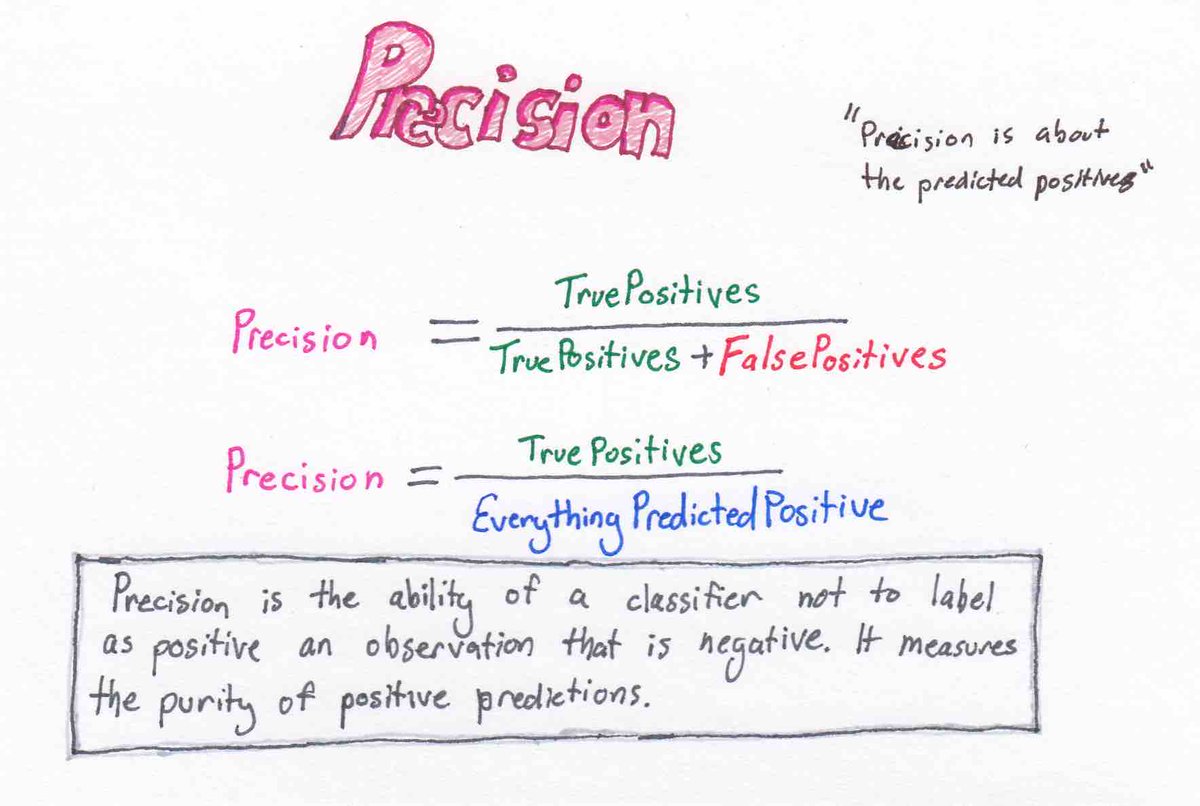 Precision
"Precision is about
the predicted positives"
TruePositives
Precision = 
TruePositives + FalsePositives
True Positives
Precision =
Everything Predicted Positive
Precision is the ability of a classifier not to label
as positive an observation that is negative. It measures
the purity of positive predictions.